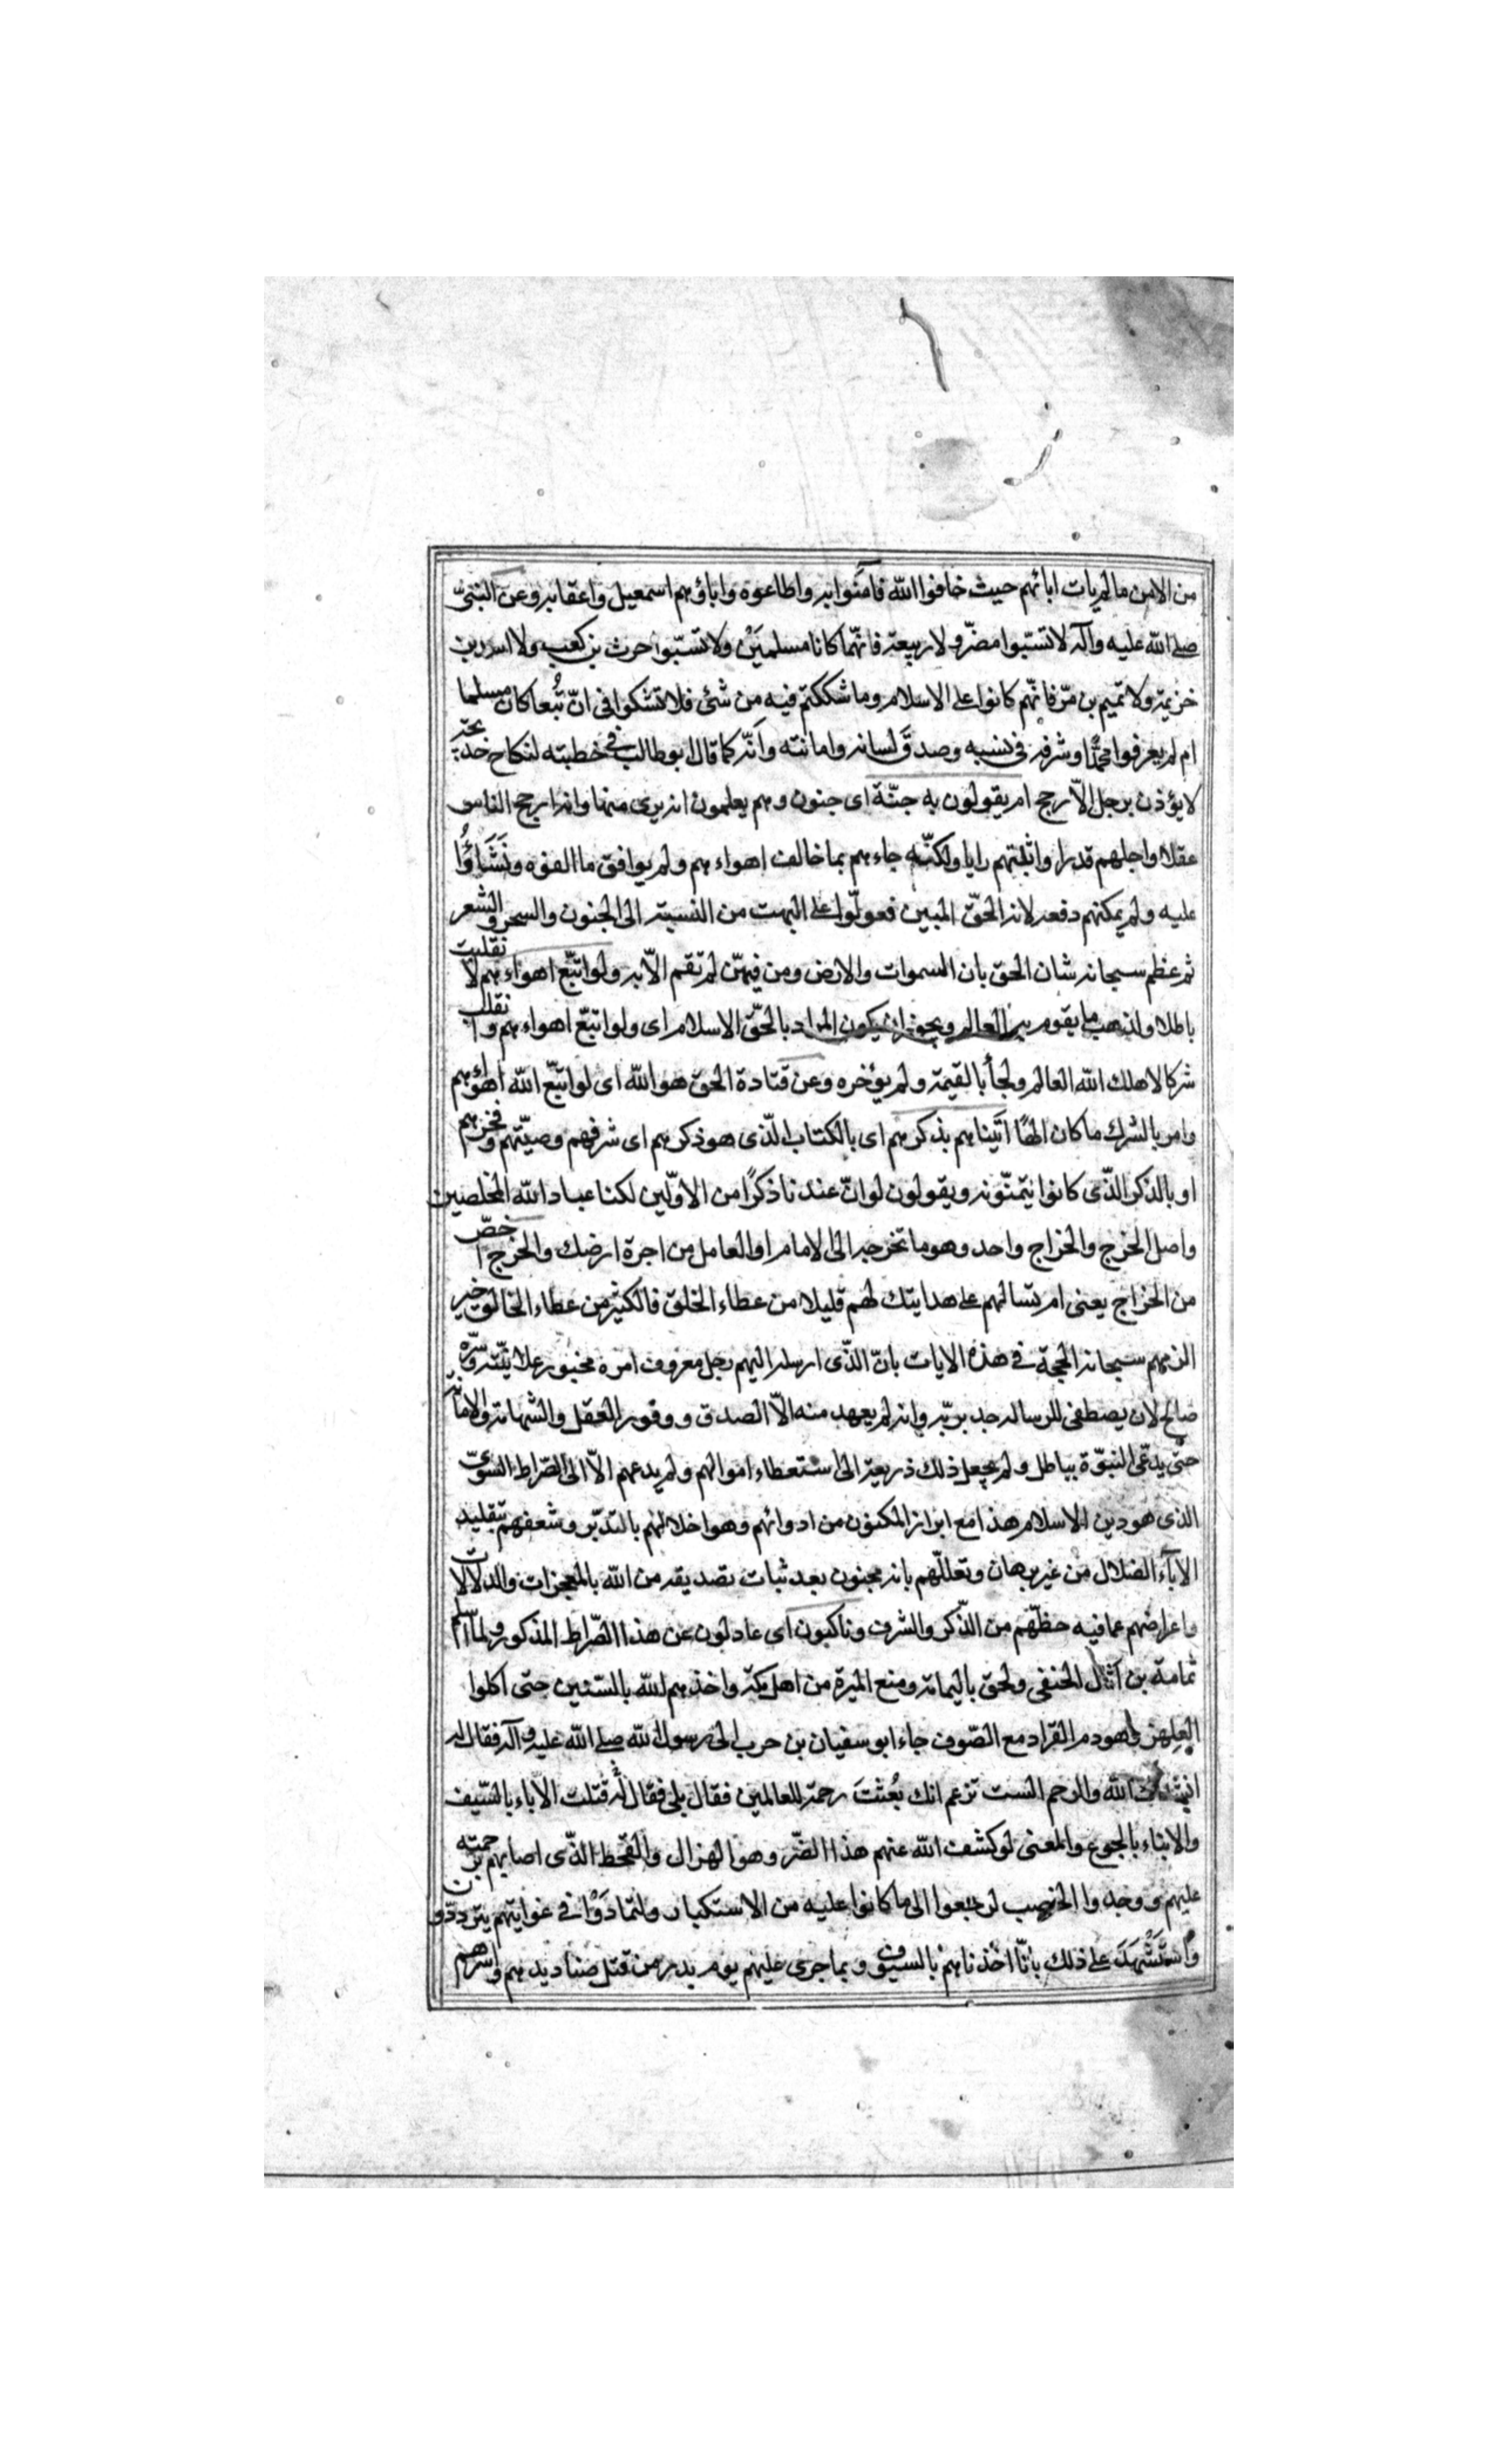 من الامن ما لم يات ابائهم حيث خافوا الله فآمنوا به واطاعوه واباؤهم اسمعيل واعقابه وعن النبىّ
صلى الله عليه وآله لا تسبّوا مضر ولا ربيعة فانّهما كانا مسلمَيْن ولا تسبّوا حرث بن كعب ولا اسد بن
خزيمة ولا تميم بن مرّ فانّهم كانوا على الاسلام وما شككتم فيه من شئ فلا تشكوا فى انّ تُبعا كان مسلما
ام لم يعرفوا محمّدًا وشرفه فى نسبه وصدق لسانه وامانته وانّه كما قال ابو طالب فى خطبته لنكاح خديجة
لا يؤذن برجل الّا رجح ام يقولون به جنّة اى جنون وهم يعلمون انه برى منها وانه ارجح الناس
عقلا واجلهم قدرا واثبتهم رايا ولكنّه جاءهم بما خالف اهواءهم ولم يوافق ما الفوه ونَشَاؤُا
عليه ولم يمكنهم دفعه لانه الحقّ المبين فعولّوا على البهت من النسبة الى الجنون والسحر والشعر
ثم عظم سبحانه شان الحق بان السموات والارض ومن فيهنّ لم تقم الّا به ولو اتبّع اهواءهم لانقلبت
باطلا ولذهب ما يقوم به العالم ويجوز ان يكون المراد بالحقّ الاسلام اى ولو اتبّع اهواءهم وانقلب
شركا لاهلك الله العالم ولجأ بالقيمة ولم يؤخره وعن قتادة الحق هو الله اى لو اتبّع الله اهوائهم
وامر بالشرك ما كان الهًا اتَيناهم بذكرهم اى بالكتاب الّذى هو ذكرهم اى شرفهم وصيتّهم وفخرهم
او بالذكر الذّى كانوا يتمنّونه ويقولون لو انّ عندنا ذكرًا من الاوّلين لكنا عباد الله المخلصين
واصل الخرج والخراج واحد وهو ما تخرجه الى الامام او العامل من اجرة ارضك والخرج اخصّ
من الخراج يعنى ام تسالهم على هدايتك لهم قليلا من عطاء الخلق فالكثير من عطاء الخالق خير
الزمهم سبحانه الحجة فى هذه الايات بانّ الذّى ارسله اليهم رجل معروف امره مخبور علانيّته وسرّه
صالح لان يصطفى للرسالة جد بريّه وانه لم يعهد منه الّا الصدق ووفور العقل والشهامة والامانة
حتّى يدّعى النبوّة بباطل ولم يجعل ذلك ذريعة الى استعطاء اموالهم ولم يدعهم الّا الى الصّراط السوىّ
الذى هو دين الاسلام هذا مع ابراز المكنون من ادوائهم وهو اخلالهم بالتدبّر وشعفهم بتقليد
الآباء الضلال من غير برهان وتعللّهم بانه مجنون بعد ثبات تصديقه من الله بالمعجزات والدلالات
واعراضهم عما فيه حظّهم من الذّكر والشرف وناكبون اى عادلون عن هذا الصّراط المذكور ولما اسلم
ثمامة بن اثال الحنفى ولحق باليمامة ومنع الميرة من اهل مكة واخذهم الله بالسّنين حتى اكلوا
العلهز وهو دم القراد مع الصّوف جاء ابو سفيان بن حرب الى رسول الله صلى الله عليه وآله فقال له
انشدك الله والرحم الست تزعم انك بُعثتَ رحمة للعالمين فقال بلى فقال له قتلت الاباء بالسّيف
والابناء بالجوع والمعنى لو كشف الله عنهم هذا الضّر وهو الهزال والقحط الذّى اصابهم برحمته
عليهم ووجدوا الخصب لرجعوا الى ما كانوا عليه من الاستكبار ولتمادَوْا فى غوايتهم يتردّدون
واستَشْهَدَ على ذلك بانّا اخذناهم بالسيوف وبما جرى عليهم يوم بدر من قتل صناديدهم واسرهم